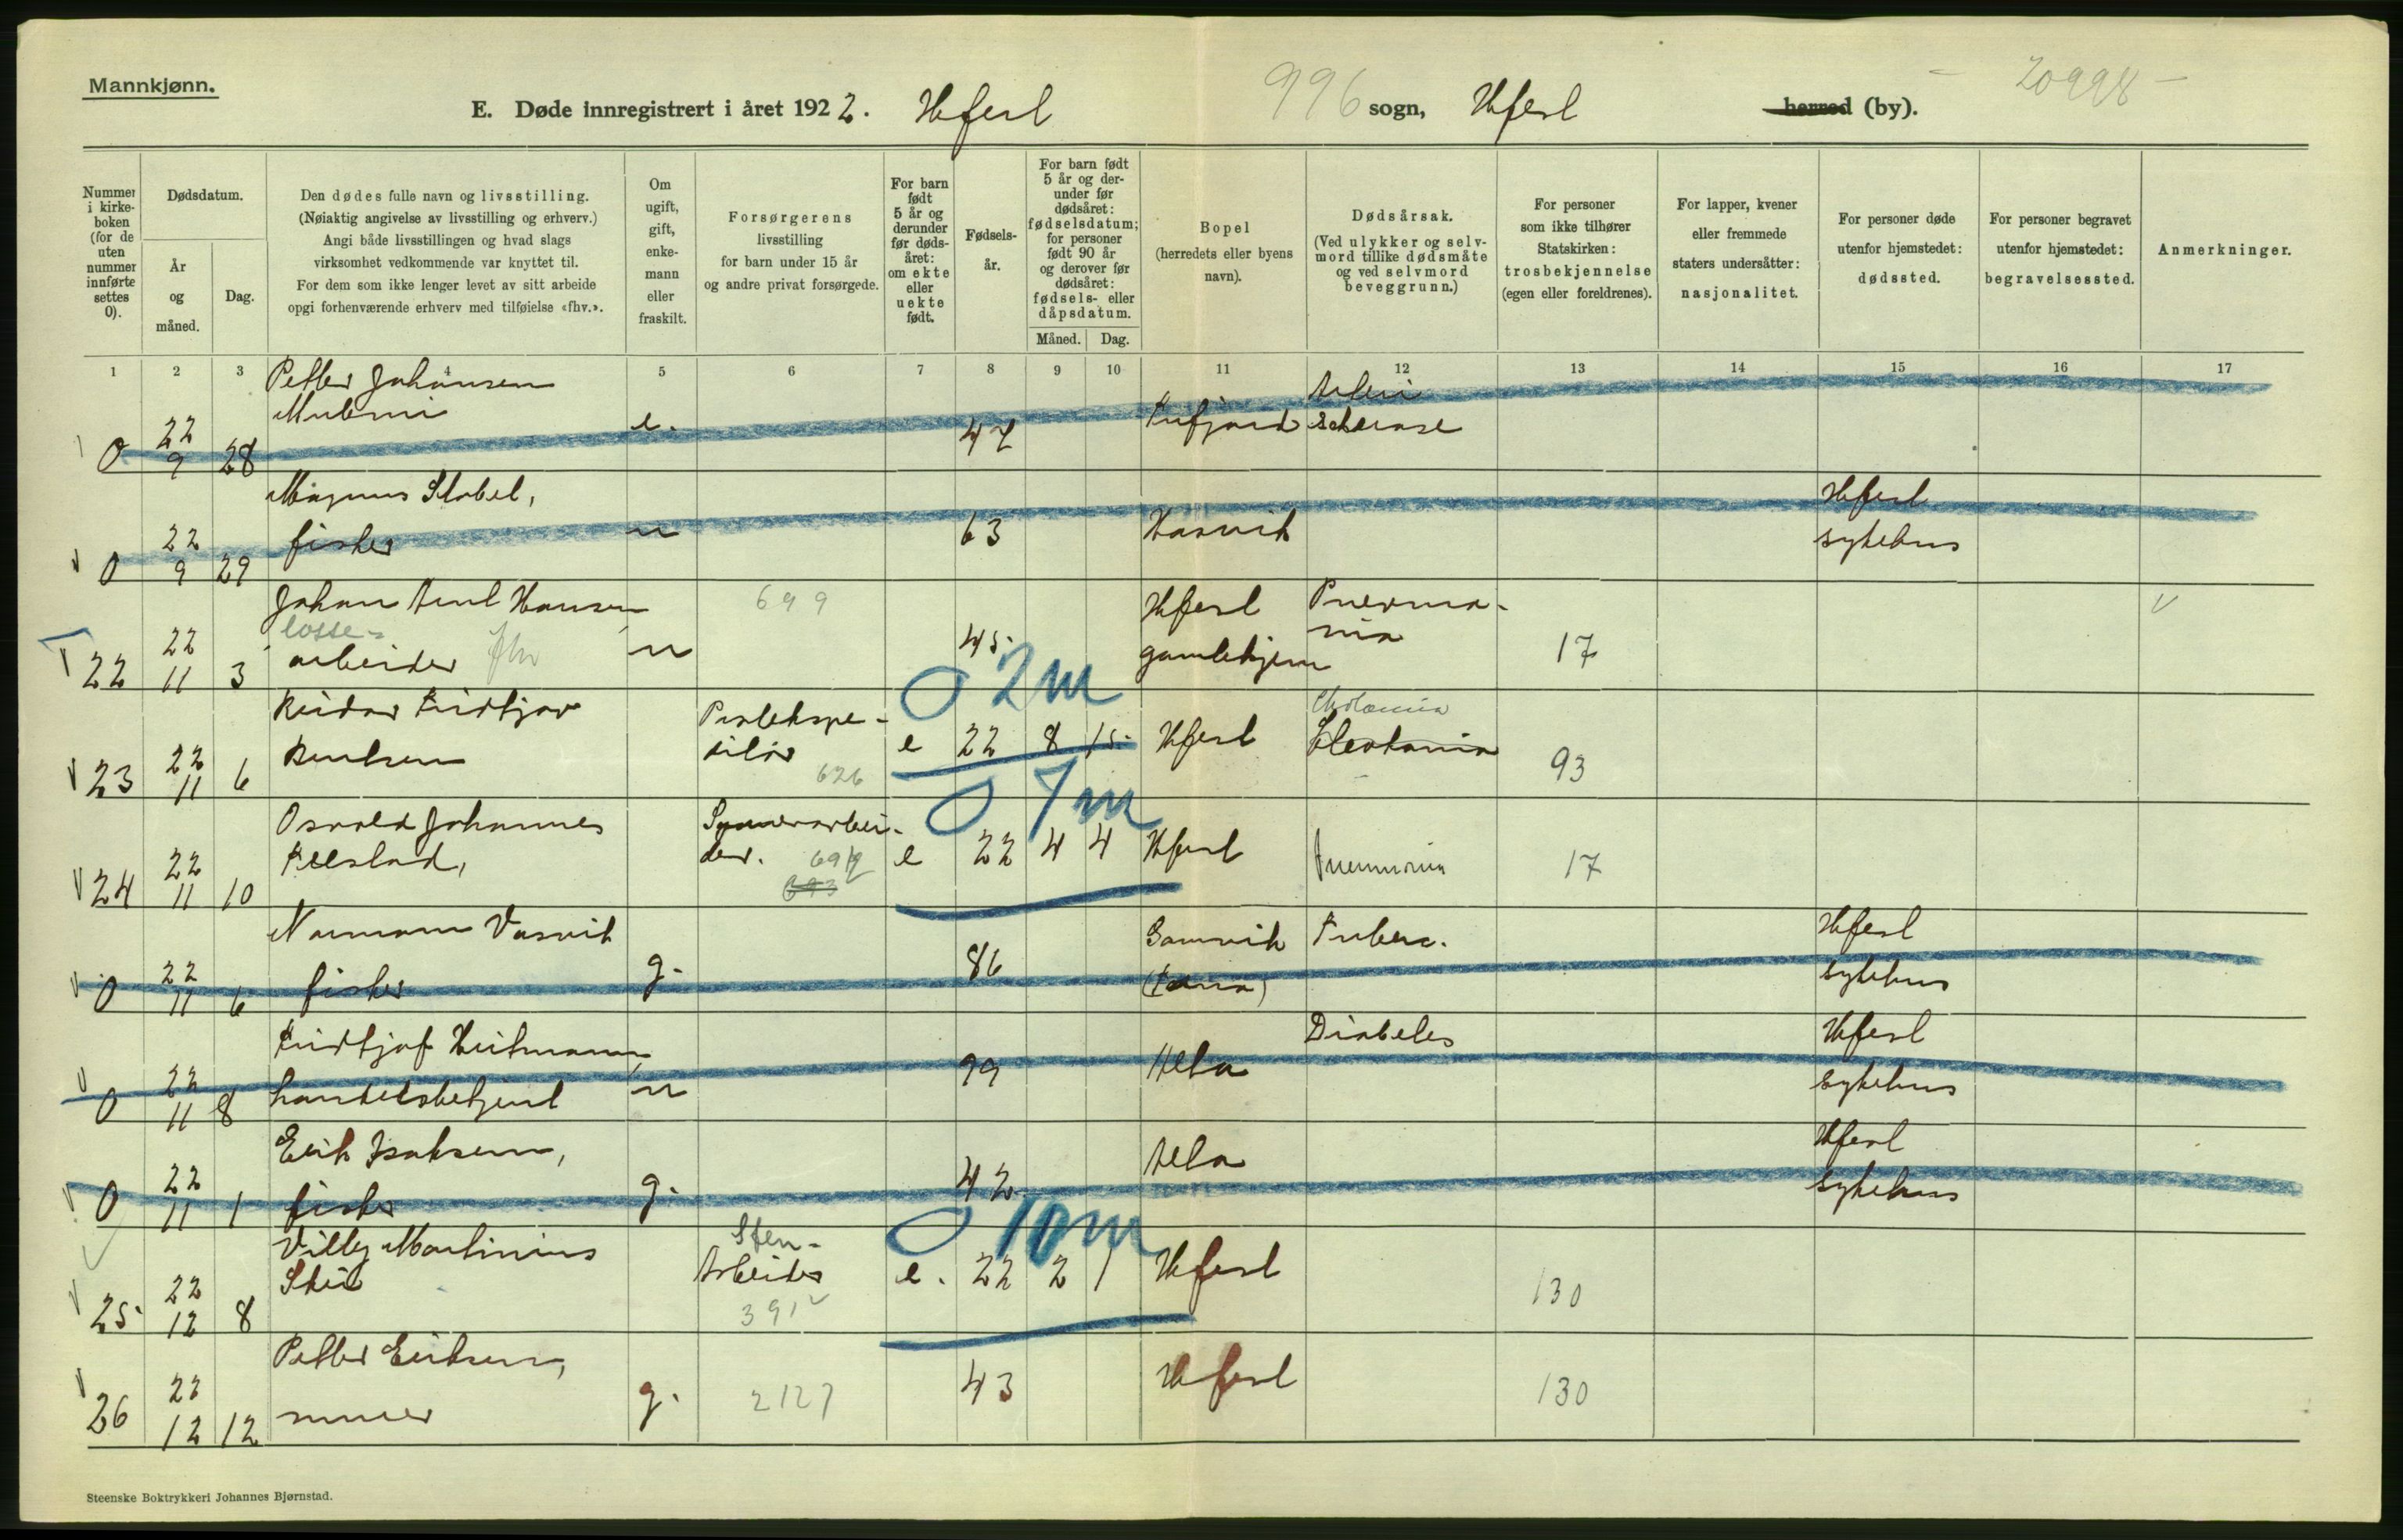 Mannkjønn.
E. Døde innregistrert i året 1922. Hfest 996 sogn, Hfest herred (by). 20998
Nummer i kirkeboken (for de uten nummer innførte settes 0).
Dødsdatum.
År og måned.
Dag.
Den dødes fulle navn og livsstilling.
(Nøiaktig angivelse av livsstilling og erhverv.)
Angi både livsstillingen og hvad slags
virksomhet vedkommende var knyttet til.
For dem som ikke lenger levet av sitt arbeide
opgi forhenværende erhverv med tilføielse «fhv.».
Om ugift, gift, enkemann eller fraskilt.
Forsørgerens
livsstilling
for barn under 15 år
og andre privat forsørgede.
For barn født 5 år og derunder før dødsåret: om ekte eller uekte født.
Fødselsår.
For barn født 5 år og derunder før dødsåret: fødselsdatum; for personer født 90 år og derover før dødsåret: fødsels- eller dåpsdatum.
Måned. Dag.
Bopel
(herredets eller byens
navn).
Dødsårsak.
(Ved ulykker og selvmord tillike dødsmåte og ved selvmord beveggrunn.)
For personer
som ikke tilhører
Statskirken:
trosbekjennelse
(egen eller foreldrenes).
For lapper, kvener
eller fremmede
staters undersåtter:
nasjonalitet.
For personer døde
utenfor hjemstedet:
dødssted.
For personer begravet
utenfor hjemstedet:
begravelsessted.
Anmerkninger.
1 2 3 4 5 6 7 8 9 10 11 12 13 14 15 16 17
Petter Johansen
0 22 9 28 e. 47
Magnus Stabel,
Hfest
0 22 9 29 fisker u 63 Hasvik sykehus
Johan Hansen 699 Hfest Pneumo-
losse-
22 22 11 3 arbeider fhv u 45 gamlehjem nia 17
02m
Reidar Fridtjov Postekspe-
Cholæmia
23 22 11 6 Bentsen ditør 626 e 22 8 15 Hfest 93
07m
Osvald Johannes
24 22 11 10 der. 699 693 e 22 4 4 Hfest Pneumonia 17
Normann Vasvik Gamvik Tuberc. Hfest
0 22 11 6 fisker g. 86 (Tana) sykehus
Fridtjof Heitmann Diabetes Hfest
0 22 11 8 handelsbetjent u 99 Alta sykehus
Erik Isaksen, Alta Hfest
0 22 11 1 fisker g. 42 sykehus
010m
Villy Martinius Sten-
25 22 12 8 Arbeider e. 22 2 1 Hfest 130
391
Petter Eriksen,
26 22 12 12 murer g. 2127 43 Hfest 130
Steenske Boktrykkeri Johannes Bjørnstad.